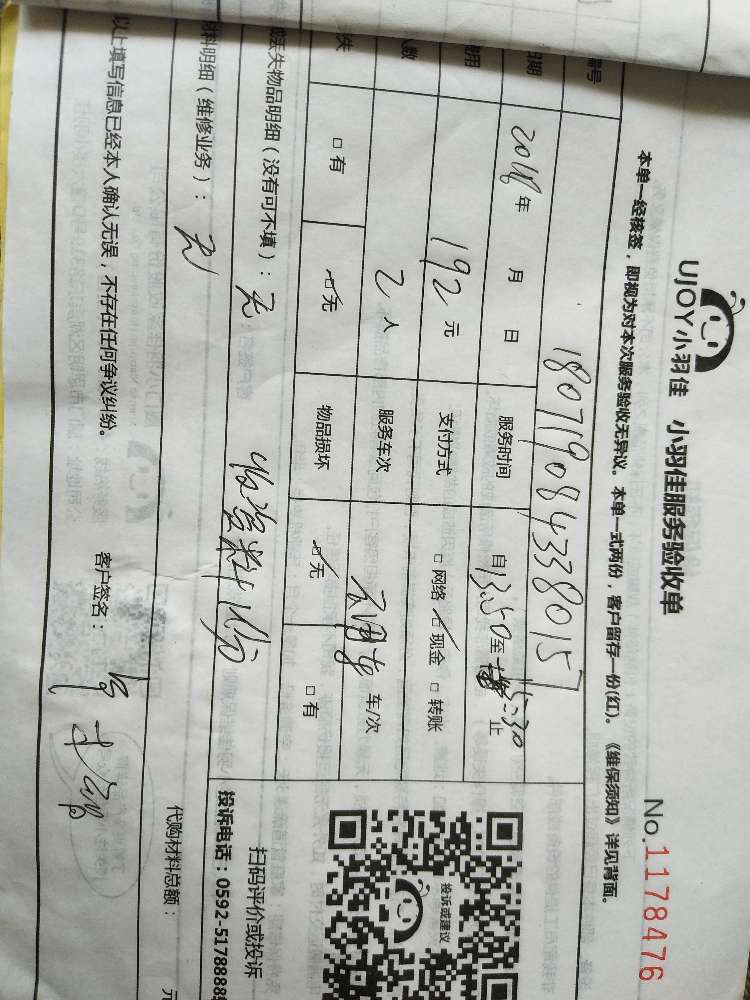 UJOY小羽佳 小羽佳服务验收单
No.1178476
本单一经核签，即视为对本次服务验收无异议。本单一式两份，客户留存一份(红)。《维保须知》详见背面。
编号 180719084338015
日期 2018年 月 日 服务时间 自13:50至 15:30止
用 192元 支付方式 □网络 ☑现金 □转账
人数 2人 服务车次 车/次
失 □有 ☑无 物品损坏 ☑无 □有
或丢失物品明细（没有可不填）：无
材料明细（维修业务）：无
收资料一份
代购材料总额： 元
以上填写信息已经本人确认无误，不存在任何争议纠纷。
客户签名：
投诉或建议
扫码评价或投诉
投诉电话：0592-5178888